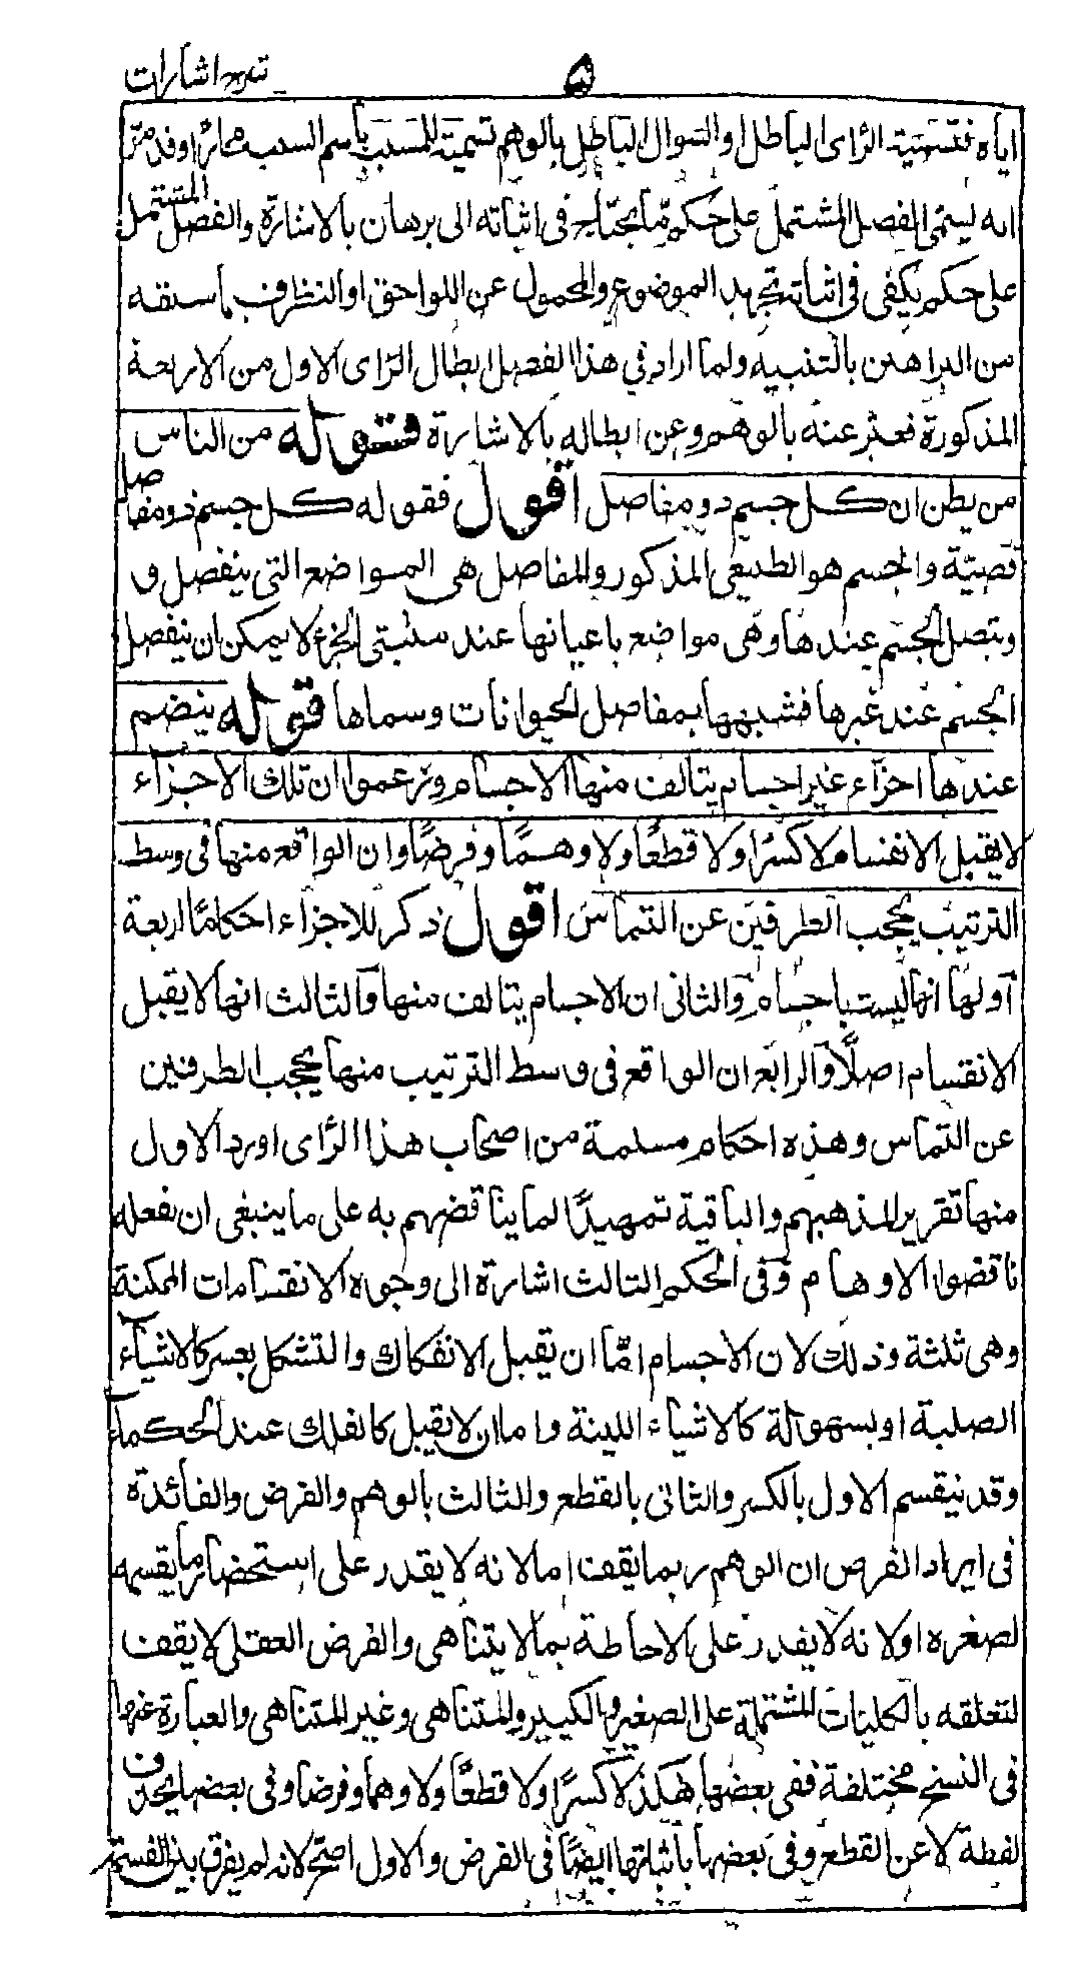 شرح اشارات
۵
اياه فتسمية الرّاى الباطل او السّوال الباطل بالوهم تسمية للمسبّب باسم السبب مجازًا وقد مرّ
انه يسمّى الفصل المشتمل على حكم مّا يحتاج فى اثباته الى برهان بالاشارة والفصل المشتمل
على حكم يكفى فى اثباته تجريد الموضوع والمحمول عن اللواحق او النظر فيما سبقه
من البراهين بالتنبيه ولما اراد في هذا الفصل ابطال الرّاى الاول من الاربعة
المذكورة فعبّر عنه بالوهم وعن ابطاله بالاشارة قوله من الناس
من يظن ان كل جسم ذو مفاصل اقول فقوله كل جسم ذو مفاصل
قضيّة والجسم هو الطبيعى المذكور والمفاصل هى المواضع التى ينفصل و
ويتصل الجسم عندها وهى مواضع باعيانها عند مثبتى الجزء لا يمكن ان ينفصل
الجسم عند غيرها فشبهها بمفاصل الحيوانات وسماها قوله ينضم
عندها اجزاء غير اجسام يتألف منها الاجسام وزعموا ان تلك الاجزاء
لا يقبل الانقسام لا كسرًا ولا قطعًا ولا وهمًا وفرضًا وان الواقع منها فى وسط
الترتيب يحجب الطرفين عن التماسّ اقول ذكر للاجزاء احكامًا اربعة
اولها انها ليست باجسام والثانى ان الاجسام يتالف منها والثالث انها لا يقبل
الانقسام اصلًا والرابع ان الواقع فى وسط الترتيب منها يحجب الطرفين
عن التماس وهذه احكام مسلمة من اصحاب هذا الرّاى اورد الاول
منها تقريرا لمذهبهم والباقية تمهيدًا لما يناقضهم به على ما ينبغى ان يفعله
ناقضوا الاوهام وفى الحكم الثالث اشارة الى وجوه الانقسامات الممكنة
وهى ثلثة وذلك لان الاجسام امّا ان يقبل الانفكاك والتشكل بعسر كالاشياء
الصلبة او بسهولة كالاشياء اللينة واما ان لا يقبل كالفلك عند الحكماء
وقد ينقسم الاول بالكسر والثانى بالقطع والثالث بالوهم والفرض والفائدة
فى ايراد الفرض ان الوهم ربما يقف اما لانه لا يقدر على استحضار ما يقسمه
لصغره او لانه لا يقدر على الاحاطة بما لا يتناهى والفرض العقلى لا يقف
لتعلقه بالكليات المشتملة على الصغير والكبير والمتناهى وغير المتناهى والعبارة عنها
فى النسخ مختلفة ففى بعضها هكذا لا كسرًا ولا قطعًا ولا وهما وفرضا وفى بعضها بحذف
لفظة لا عن القطع وفى بعضها باثباتها ايضًا فى الفرض والاول اصحّ لانه لم يفرق بين القسمة